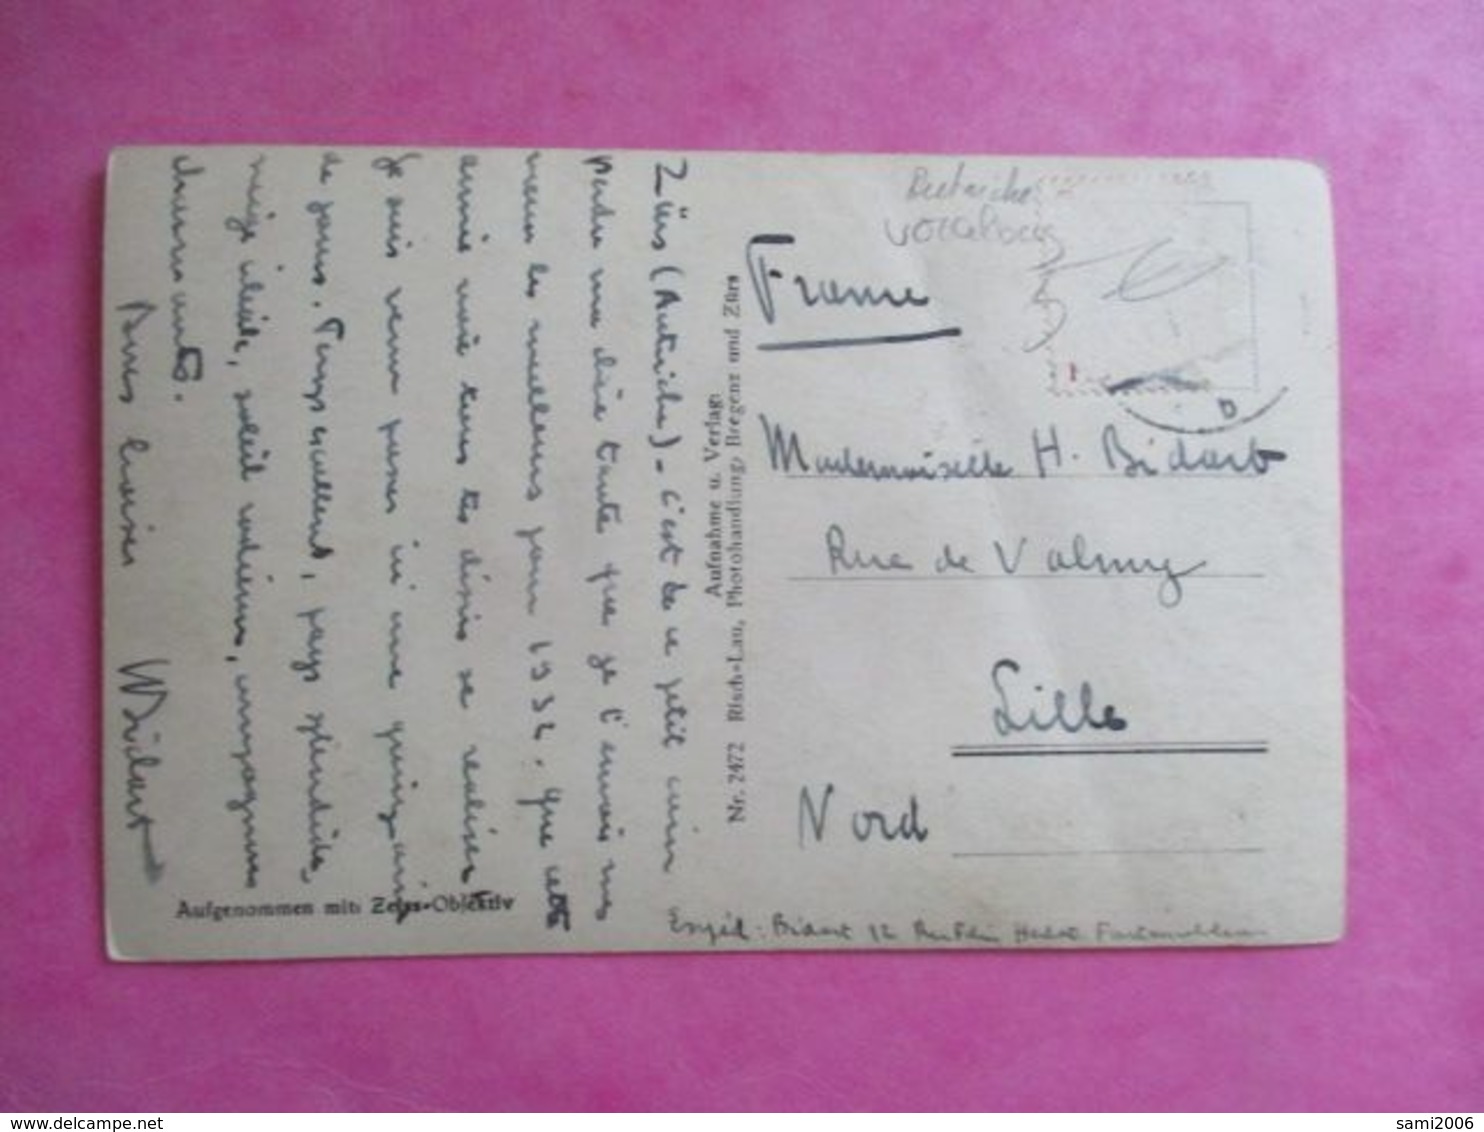 Zürs (Autriche) - C'est de ce petit coin
perdu ma chère tante que je t'envoie mes
vœux les meilleurs pour 1934. Que cette
année voie tous tes désirs se réaliser
Je suis venu passer ici une quinzaine
de jours. Temps excellent, pays splendide,
neige idéale, soleil radieux, montagnes
charmantes.
Bons baisers
Bidart
Aufgenommen mit: Zeiss-Objektiv
Aufnahme u. Verlag:
Nr. 2472 Risch-Lau, Photohandlung, Bregenz und Zürs
Autriche
Vorarlberg
France
Mademoiselle H. Bidart
Rue de Valmy
Lille
Nord
Expéd: Bidart 12
sami2006